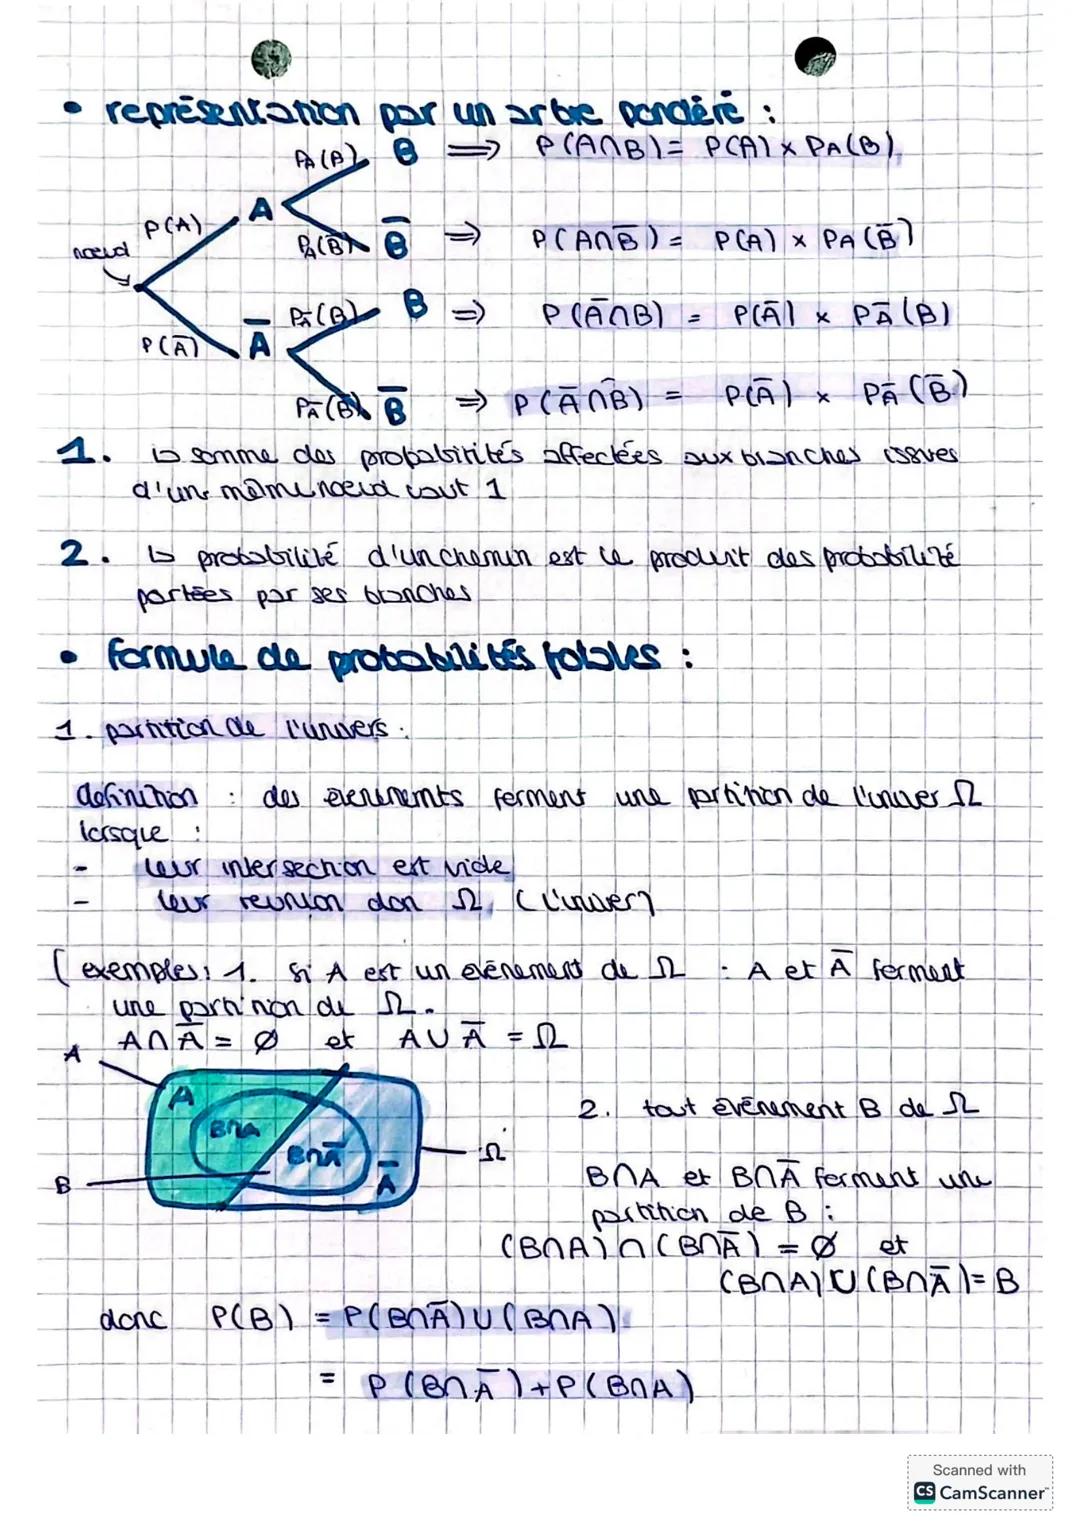 • représentation par un arbre pondéré :
PA(B) B ⟹ P(A∩B) = P(A) × PA(B)
P(A) A
noeud PA(B̅) B̅ ⟹ P(A∩B̅) = P(A) × PA(B̅)
PA̅(B) B ⟹ P(A̅∩B) = P(A̅) × PA̅(B)
P(A̅) A̅
PA̅(B̅) B̅ ⟹ P(A̅∩B̅) = P(A̅) × PA̅(B̅)
1. la somme des probabirités affectées aux branches issues
d'un même noeud vaut 1
2. la probabilité d'un chemin est le produit des probabilité
portées par ses branches
• formule de probabilités totales :
1. partition de l'univers :
définition : des évenements forment une partition de l'univer Ω
lorsque :
- leur intersection est vide
- leur reunion don Ω (l'univer)
(exemples : 1. si A est un événement de Ω : A et A̅ forment
une partition de Ω.
A∩A̅ = Ø et A∪A̅ = Ω
A
A
B∩A
B∩A̅
A̅
Ω
B
2. tout événement B de Ω
B∩A et B∩A̅ forment une
partition de B :
(B∩A)∩(B∩A̅) = Ø et
(B∩A)∪(B∩A̅) = B
donc P(B) = P(B∩A̅)∪(B∩A)
= P(B∩A̅)+P(B∩A)
Scanned with
CS CamScanner